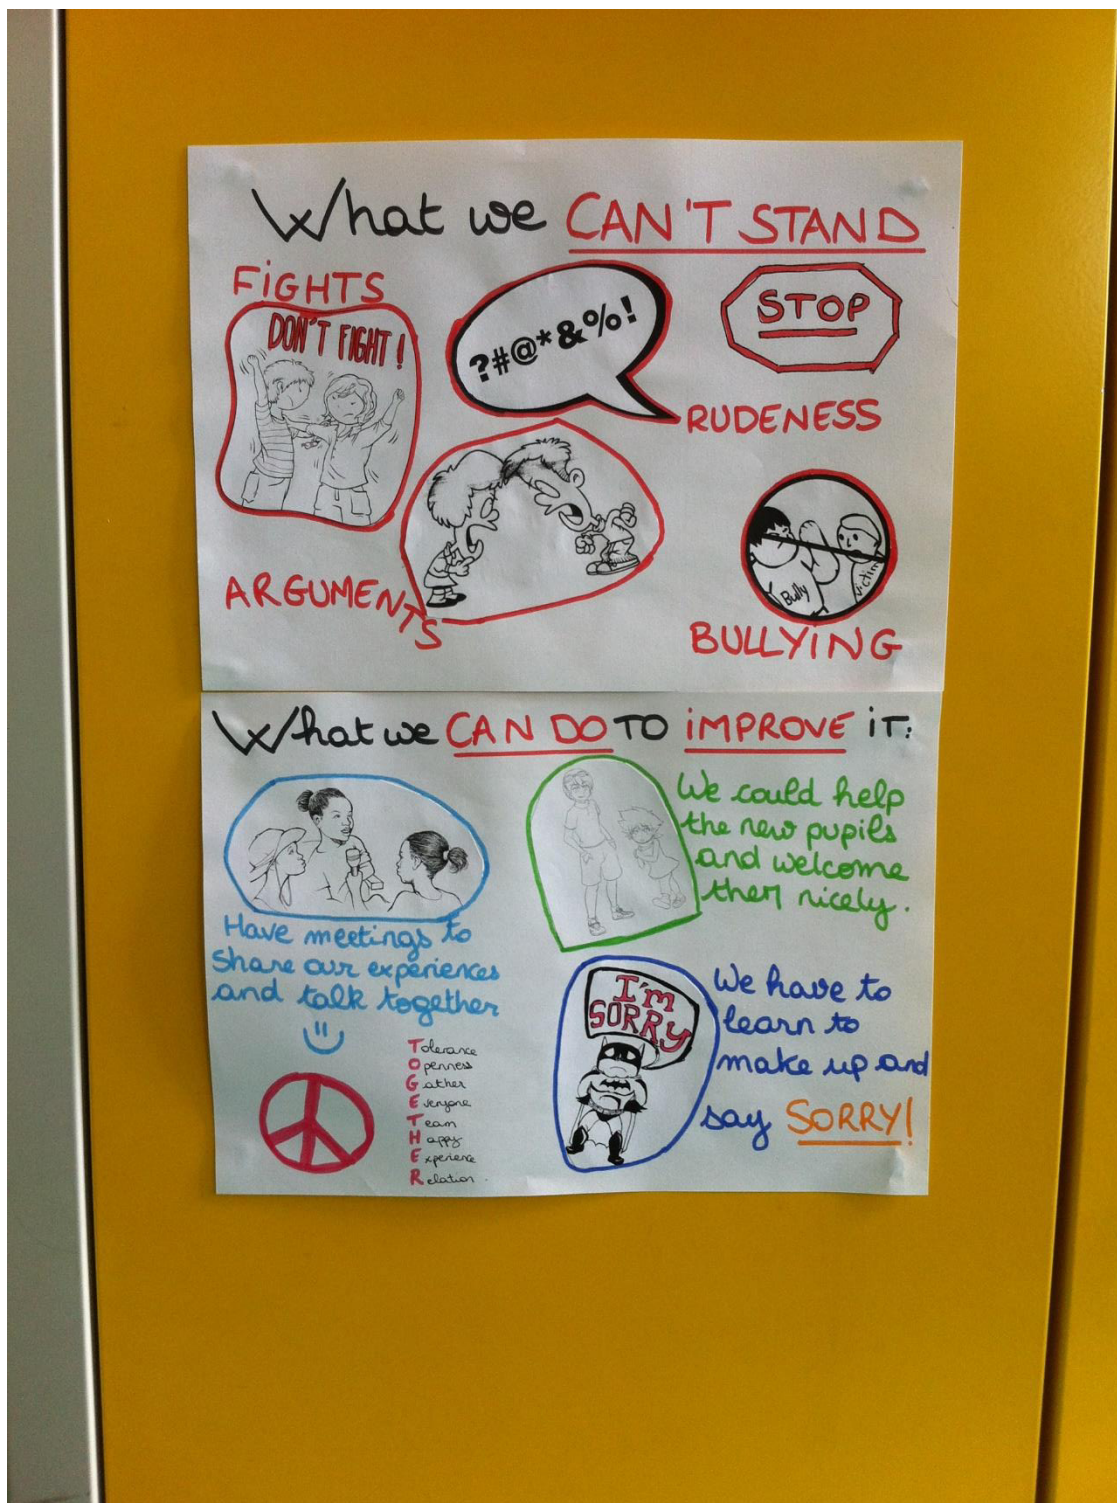 What we CAN'T STAND
FIGHTS
DON'T FIGHT!
?#@*&%!
STOP
RUDENESS
ARGUMENTS
Bully
victim
BULLYING
What we CAN DO TO IMPROVE IT:
Have meetings to
share our experiences
and talk together
We could help
the new pupils
and welcome
them nicely.
Tolerance
Openness
Gather
Everyone
Team
Happy
Experience
Relation.
I'm
SORRY
We have to
learn to
make up and
say SORRY!